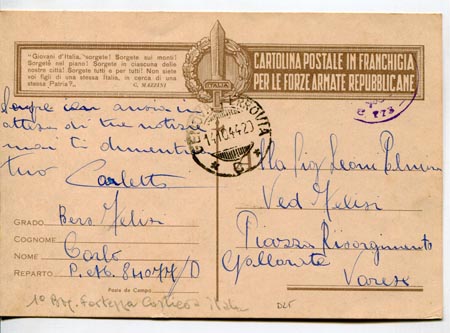 "Giovani d'Italia, "sorgete! Sorgete sui monti!
Sorgete nel piano! Sorgete in ciascuna delle
nostre città! Sorgete tutti e per tutti! Non siete
voi figli di una stessa Italia, in cerca di una
stessa Patria?"
G. MAZZINI
CARTOLINA POSTALE IN FRANCHIGIA
PER LE FORZE ARMATE REPUBBLICANE
FERROVIA
10.44.20
6
con ansia in
attesa di tue notizie
mai ti dimentico
tuo Carletto
Alla Sig Leoni
Ved Melisi
Piazza Risorgimento
Gallarate
Varese
GRADO Bers Melisi
COGNOME
NOME Carlo
REPARTO P. C. 84077/D
Posta da Campo
1° Brg. Fortezza Costiera Italia